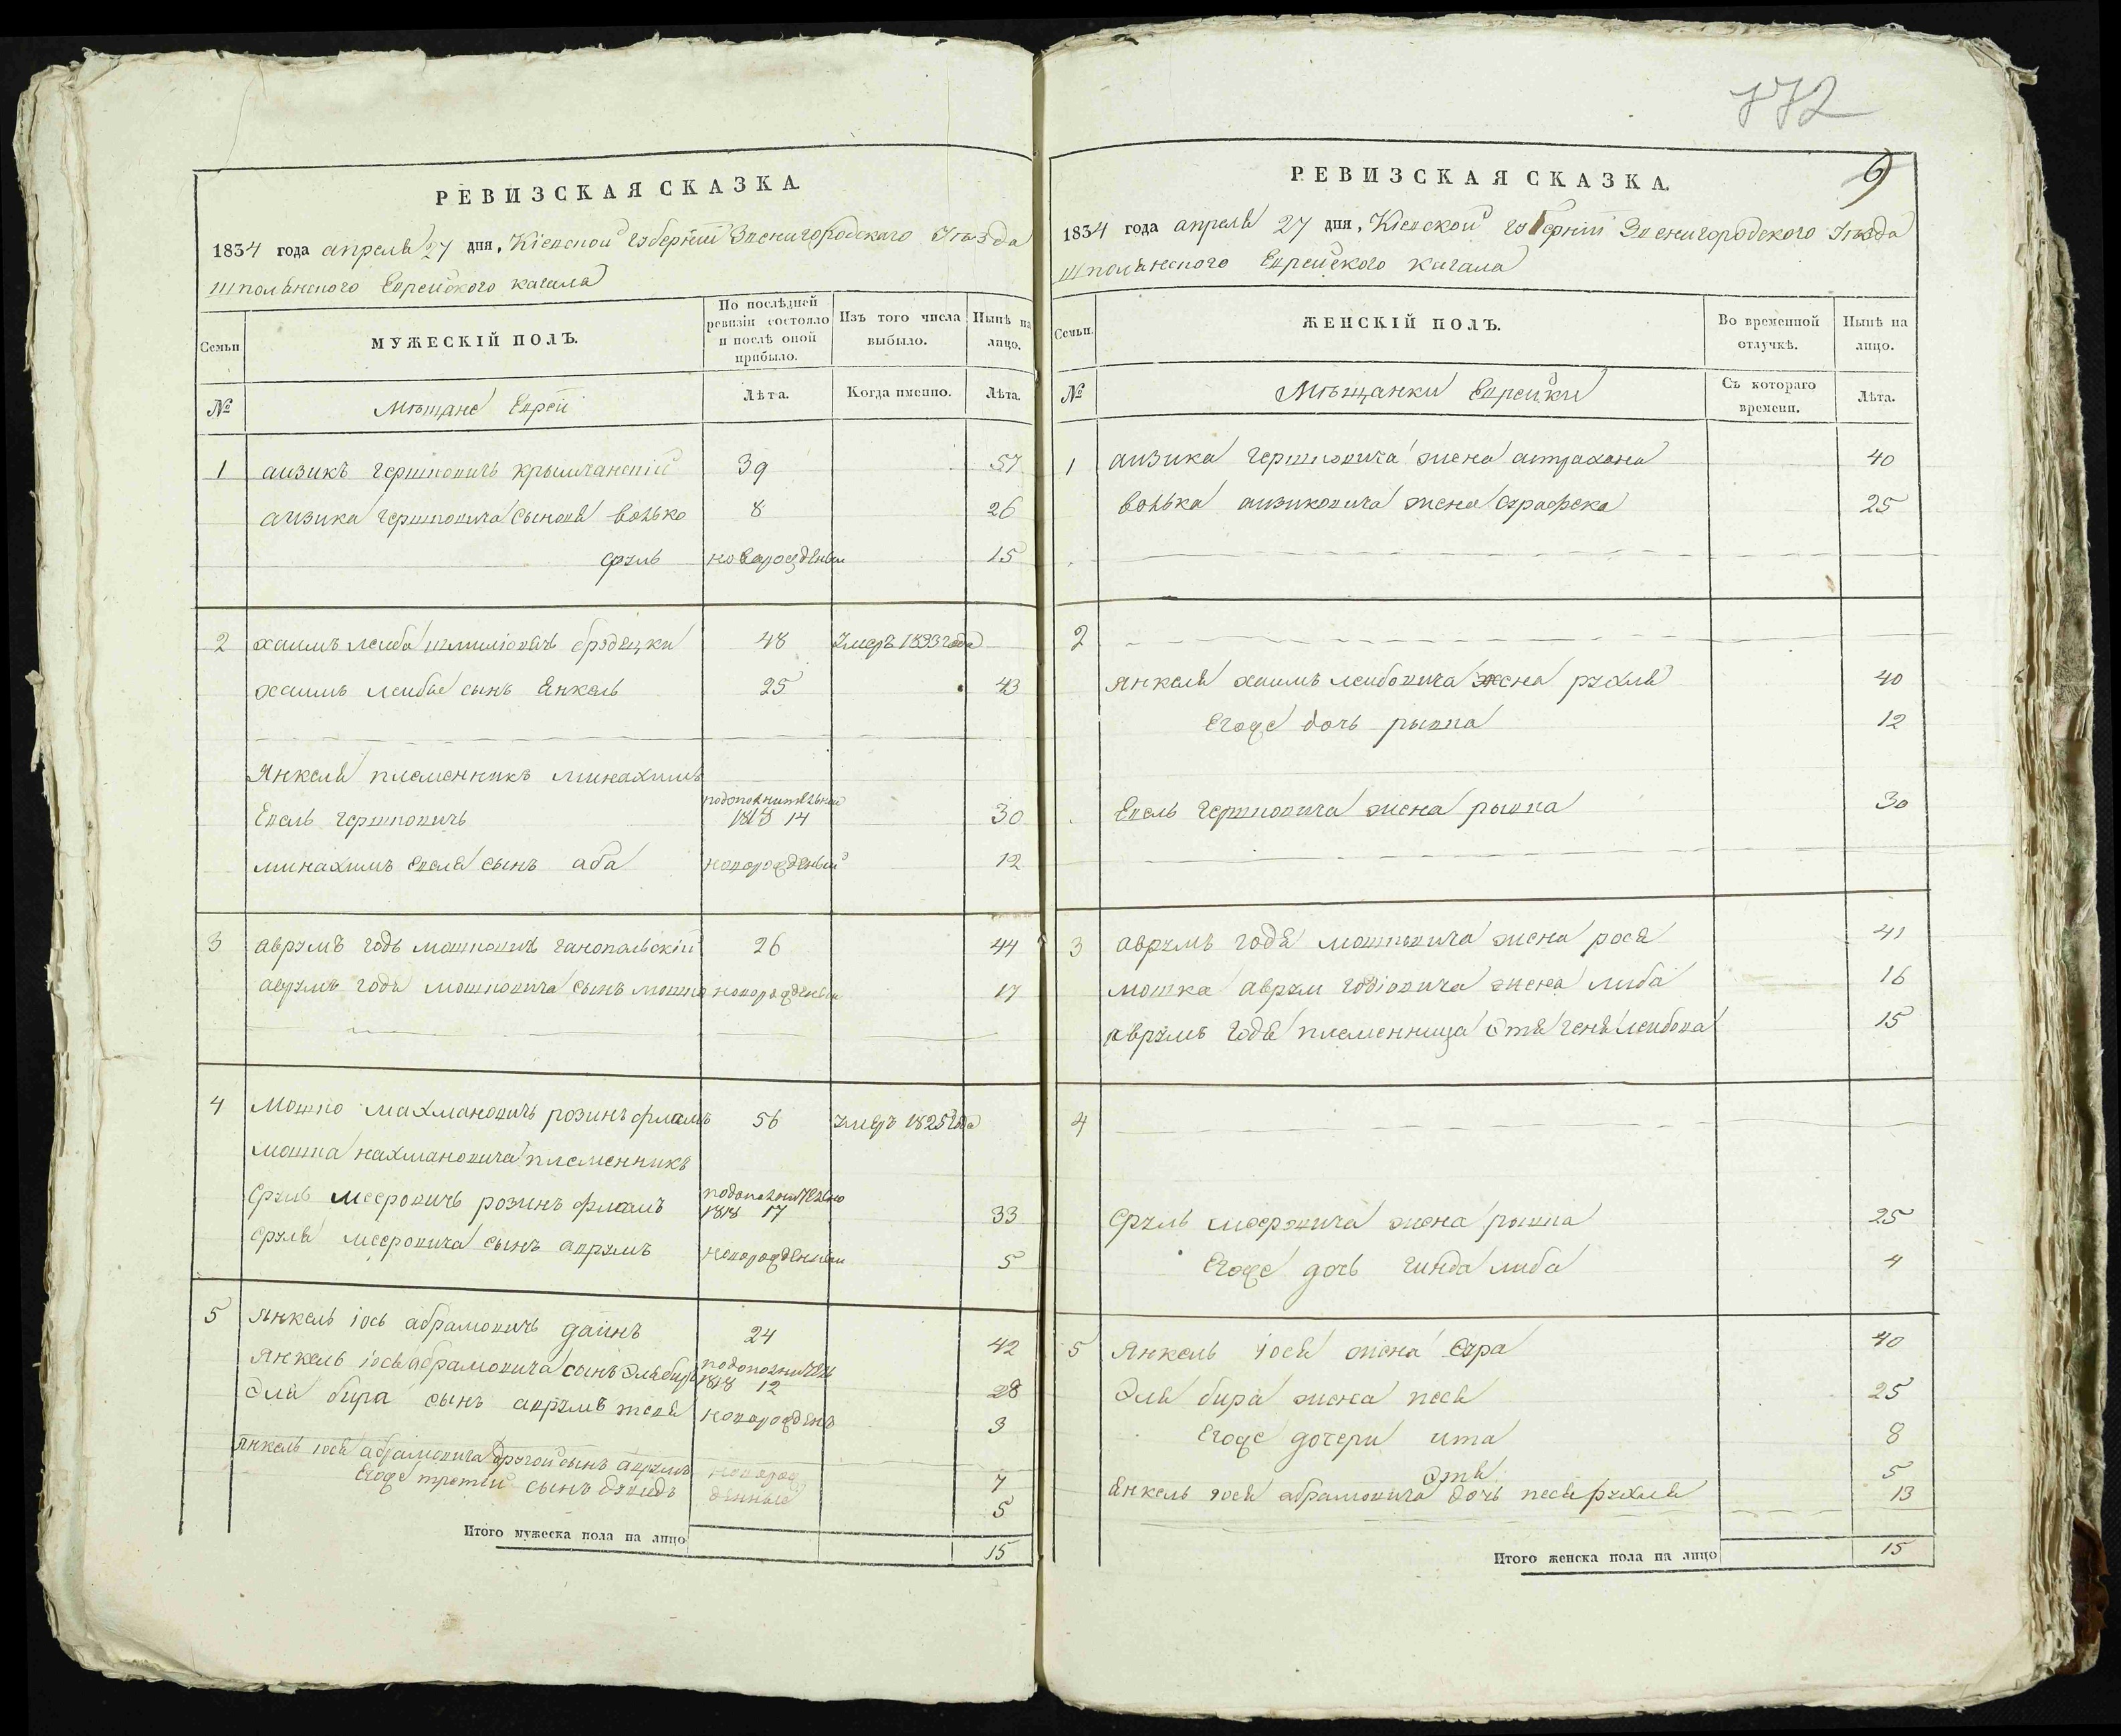 РЕВИЗСКАЯ СКАЗКА
1834 года апреля 27 дня, Кіевской губерніи Звенигородскаго Уѣзда
Шполянского Еврейского кагала
Семьи
МУЖЕСКІЙ ПОЛЪ.
По послѣдней ревизіи состояло и послѣ оной прибыло.
Изъ того числа выбыло.
Нынѣ на лицо.
№
Мѣщане Евреи
Лѣта.
Когда именно.
Лѣта.
1 аизикъ гершковичъ крымчанскій 39 57
аизика гершковича сыновя волько 8 26
сруль новарожденыи 15
2 хаимъ леиба шлиміовичъ брэдецки 48 Умеръ 1833 года
хаимъ леибы сынъ Енкель 25 43
Янкеля племенникъ минахимъ
Евель гершковичъ подополнительнои 1818 14 30
минахимъ евеля сынъ аба новорожденый 12
3 аврумъ годь мошковичъ ганопольскій 26 44
аврумъ годя мошковича сынъ мошко новорожденыи 17
4 Мошко махмановичъ розинъ флямъ 56 Умеръ 1825 года
мошка нахмановича племенникъ
Сруль меєровичъ розинъ флямъ 1818 17 33
сруля меєровича сынъ аврумъ новорожденыи 5
5 Янкель іось абрамовичъ даинъ 24 42
Янкель іося абрамовича сынъ Эля бира 1818 12 28
Эля бира сынъ аврумъ новорожденъ 3
Янкель іося абрамовича другой сынъ аврумъ новорож 7
Егоже третій сынъ дувидъ денные 5
Итого мужеска пола на лицо 15
772
РЕВИЗСКАЯ СКАЗКА.
6
1834 года апреля 27 дня, Кіевской губерніи Звенигородского Уѣзда
Шполянского Еврейского кагала
Семьи.
ЖЕНСКІЙ ПОЛЪ.
Во временной отлучкѣ.
Нынѣ на лицо.
№
Мѣщанки Еврейки
Съ котораго времени.
Лѣта.
1 аизика гершковича жена 40
волька аизиковича жена 25
2
Янкеля хаимъ леибовича жена рухля 40
Егоже дочь рывка 12
Евель гершковича жена рывка 30
3 аврумъ годя мошковича жена рося 41
мошка аврум годіовича жена либа 16
аврумъ годя племенница Этя геня леибова 15
4
Сруль меєровича жена рывка 25
Егоже дочь гинда либа 4
5 Янкель іося жена сура 40
Эля бира жена песя 25
Егоже дочери ита 8
Этя 5
Енкель іося абрамовича дочь песя рухля 13
Итого женска пола на лицо 15